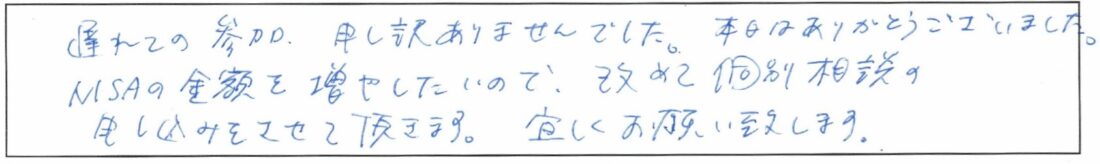 遅れての参加、申し訳ありませんでした。本日はありがとうございました。
NISAの金額を増やしたいので、改めて個別相談の
申し込みをさせて頂きます。宜しくお願い致します。